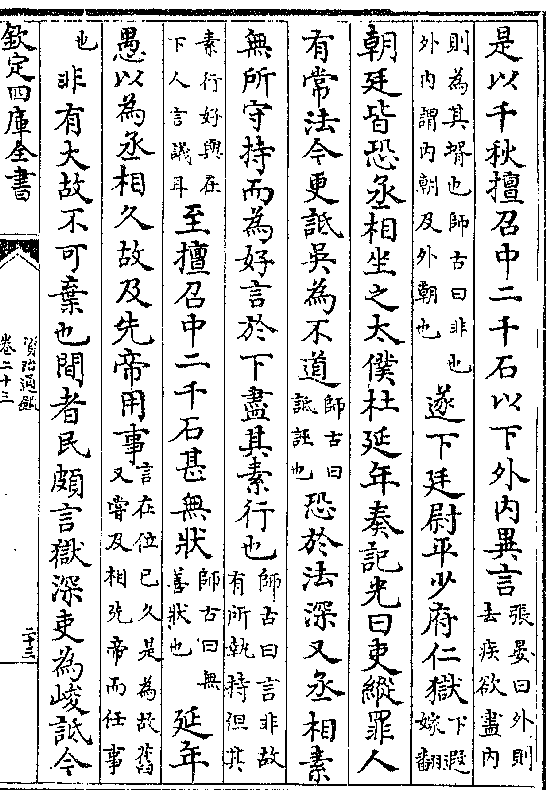 是以千秋擅召中二千石以下外内異言張晏曰外則去疾欲盡内
則為其壻也師古曰非也外内謂内朝及外朝也遂下廷尉平少府仁獄下遐嫁翻
朝廷皆恐丞相坐之太僕杜延年奏記光曰吏縱罪人
有常法今更詆吳為不道師古曰詆誣也恐於法深又丞相素
無所守持而為好言於下盡其素行也師古曰言非故有所執持但其
素行好與在下人言議耳至擅召中二千石甚無狀師古曰無善狀也延年
愚以為丞相久故及先帝用事言在位已久是為故舊又嘗及相先帝而任事
也非有大故不可棄也間者民頗言獄深吏為峻詆今
欽定四庫全書
資治通鑑
卷二十三
二十三